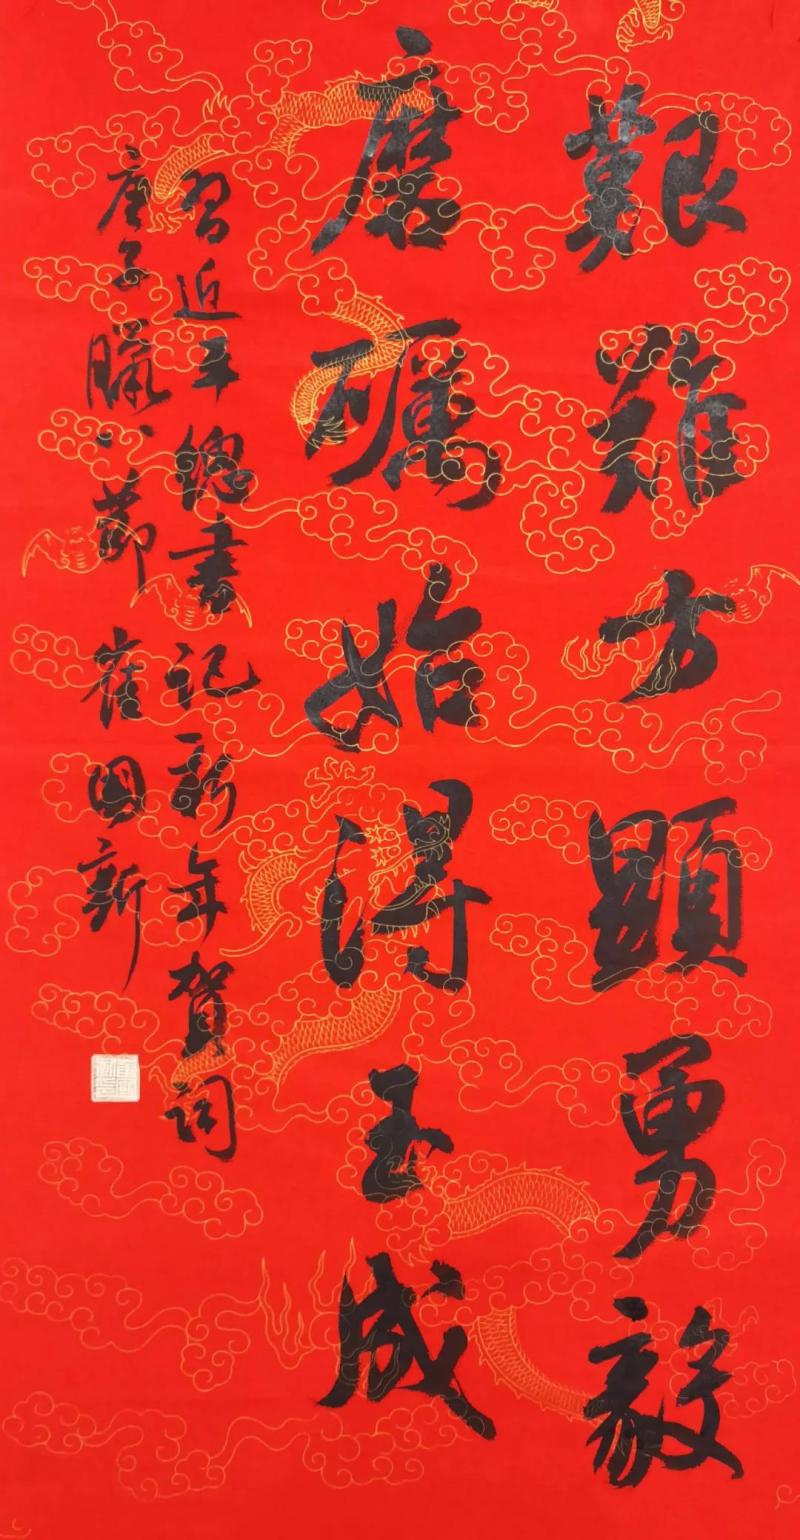 艱難方顯勇毅
磨礪始得玉成
習近平總書记新年賀词
庚子臘八節 崔国新